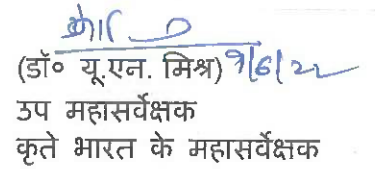 (डॉ० यू.एन. मिश्र) 9/6/22
उप महासर्वेक्षक
कृते भारत के महासर्वेक्षक